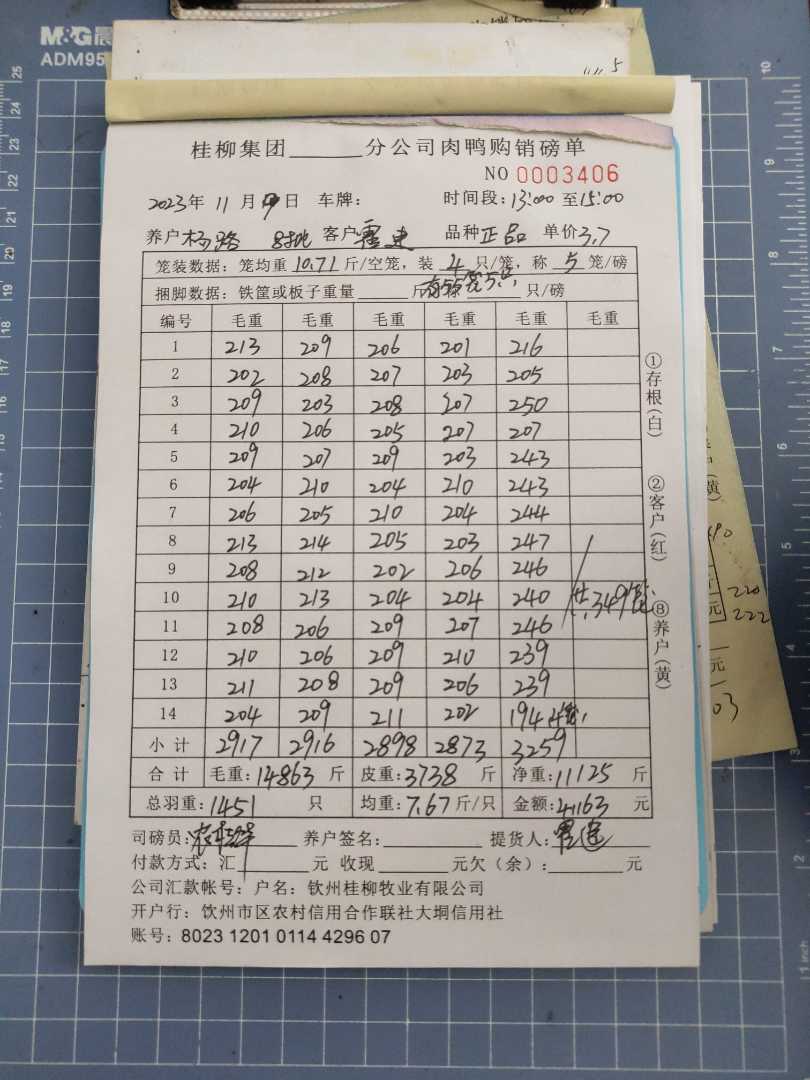 M&G晨
ADM95
5
桂柳集团______分公司肉鸭购销磅单
NO 0003406
2023年 11月 9日 车牌: 时间段: 13:00 至15:00
养户 杨路 8批 客户 霍建 品种 正品 单价3.7
笼装数据: 笼均重 10.71 斤/空笼, 装 4 只/笼, 称 5 笼/磅
捆脚数据: 铁筐或板子重量______斤 ______只/磅
编号 毛重 毛重 毛重 毛重 毛重 毛重
1 213 209 206 201 216
2 202 208 207 203 205
3 209 203 208 207 250
4 210 206 205 207 207
5 209 207 209 203 243
6 204 210 204 210 243
7 206 205 210 204 244
8 213 214 205 203 247
9 208 212 202 206 246
10 210 213 204 204 240 共349笼
11 208 206 209 207 246
12 210 206 209 210 239
13 211 208 209 206 239
14 204 209 211 202 194 4笼
小计 2917 2916 2898 2873 3259
合计 毛重: 14863 斤 皮重: 3738 斤 净重: 11125 斤
总羽重: 1451 只 均重: 7.67 斤/只 金额: 41163 元
司磅员: 养户签名: 提货人: 霍建
付款方式: 汇______元 收现______元欠(余):______元
公司汇款帐号: 户名: 钦州桂柳牧业有限公司
开户行: 饮州市区农村信用合作联社大垌信用社
账号: 8023 1201 0114 4296 07
①存根(白) ②客户(红) ⑧养户(黄)
(黄)
元
220
222
元
03